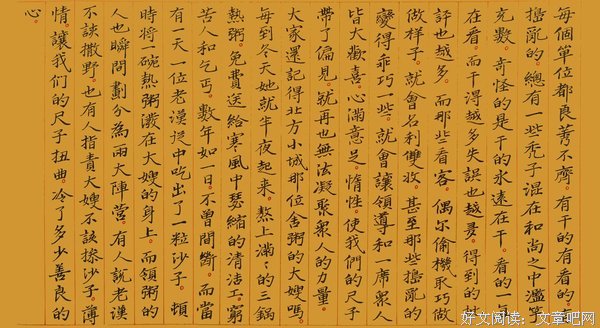 每個單位都良莠不齊。有干的有看的有
搗亂的。總有一些禿子混在和尚之中濫竽
充數。奇怪的是干的永遠在干。看的一直
在看。而干得越多失誤也越多。得到的批
評也越多。而那些看客。偶尔偷機取巧做
做樣子。就會名利雙收。甚至那些搗亂的
變得乖巧一些。就會讓領導和一席衆人
皆大歡喜。心滿意足。惰性。使我們的尺子
帶了偏見。就再也無法凝聚衆人的力量。
大家還記得北方小城那位舍粥的大嫂嗎
每到冬天她就半夜起來。熬上滿的三鍋
熱粥。免費送給寒風中瑟縮的清洁工。窮
苦人和乞丐。數年如一日。不曾間斷。而當
有一天一位老漢從中吃出了一粒沙子。頓
時將一碗熱粥潑在大嫂的身上。而領粥的
人也瞬間劃分為兩大陣營。有人說老漢
不該撒野。也有人指責大嫂不該摻沙子。薄
情。讓我們的尺子扭曲。冷了多少善良的
心。
好文阅读：フ文章吧网